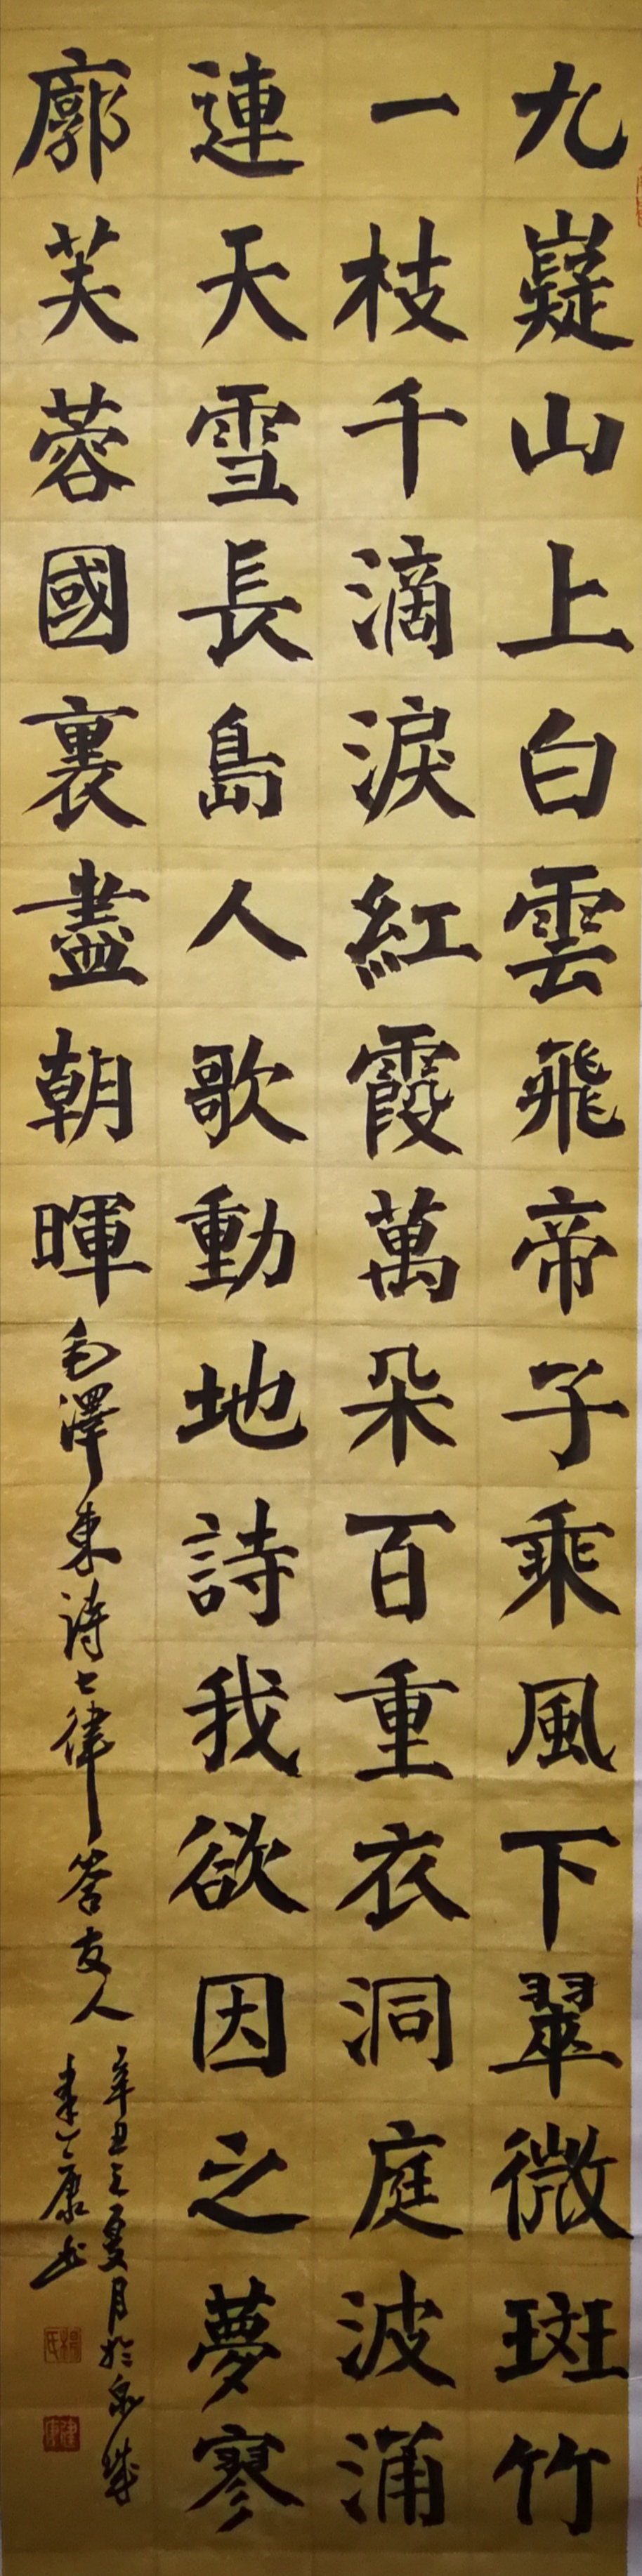 九嶷山上白雲飛帝子乘風下翠微斑竹
一枝千滴淚紅霞萬朵百重衣洞庭波涌
連天雪長島人歌動地詩我欲因之夢寥
廓芙蓉國裏盡朝暉
毛澤東詩七律答友人
辛丑之夏月於泉城
建康书